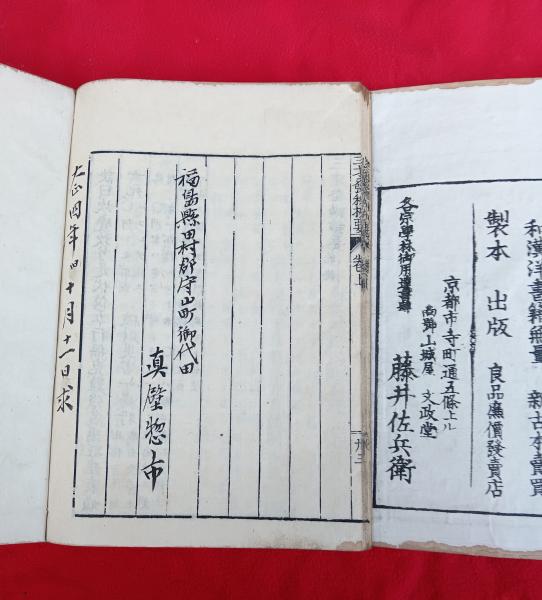 和漢洋書籍無量 新古本賣買
製本 出版 良品廉價發賣店
京都市寺町通五條上ル
商號山城屋 文政堂
藤井佐兵衛
各宗學林御用達書肆
卷上
卅三
福島縣田村郡守山町御代田
真壁惣市
大正四年四十月十一日求